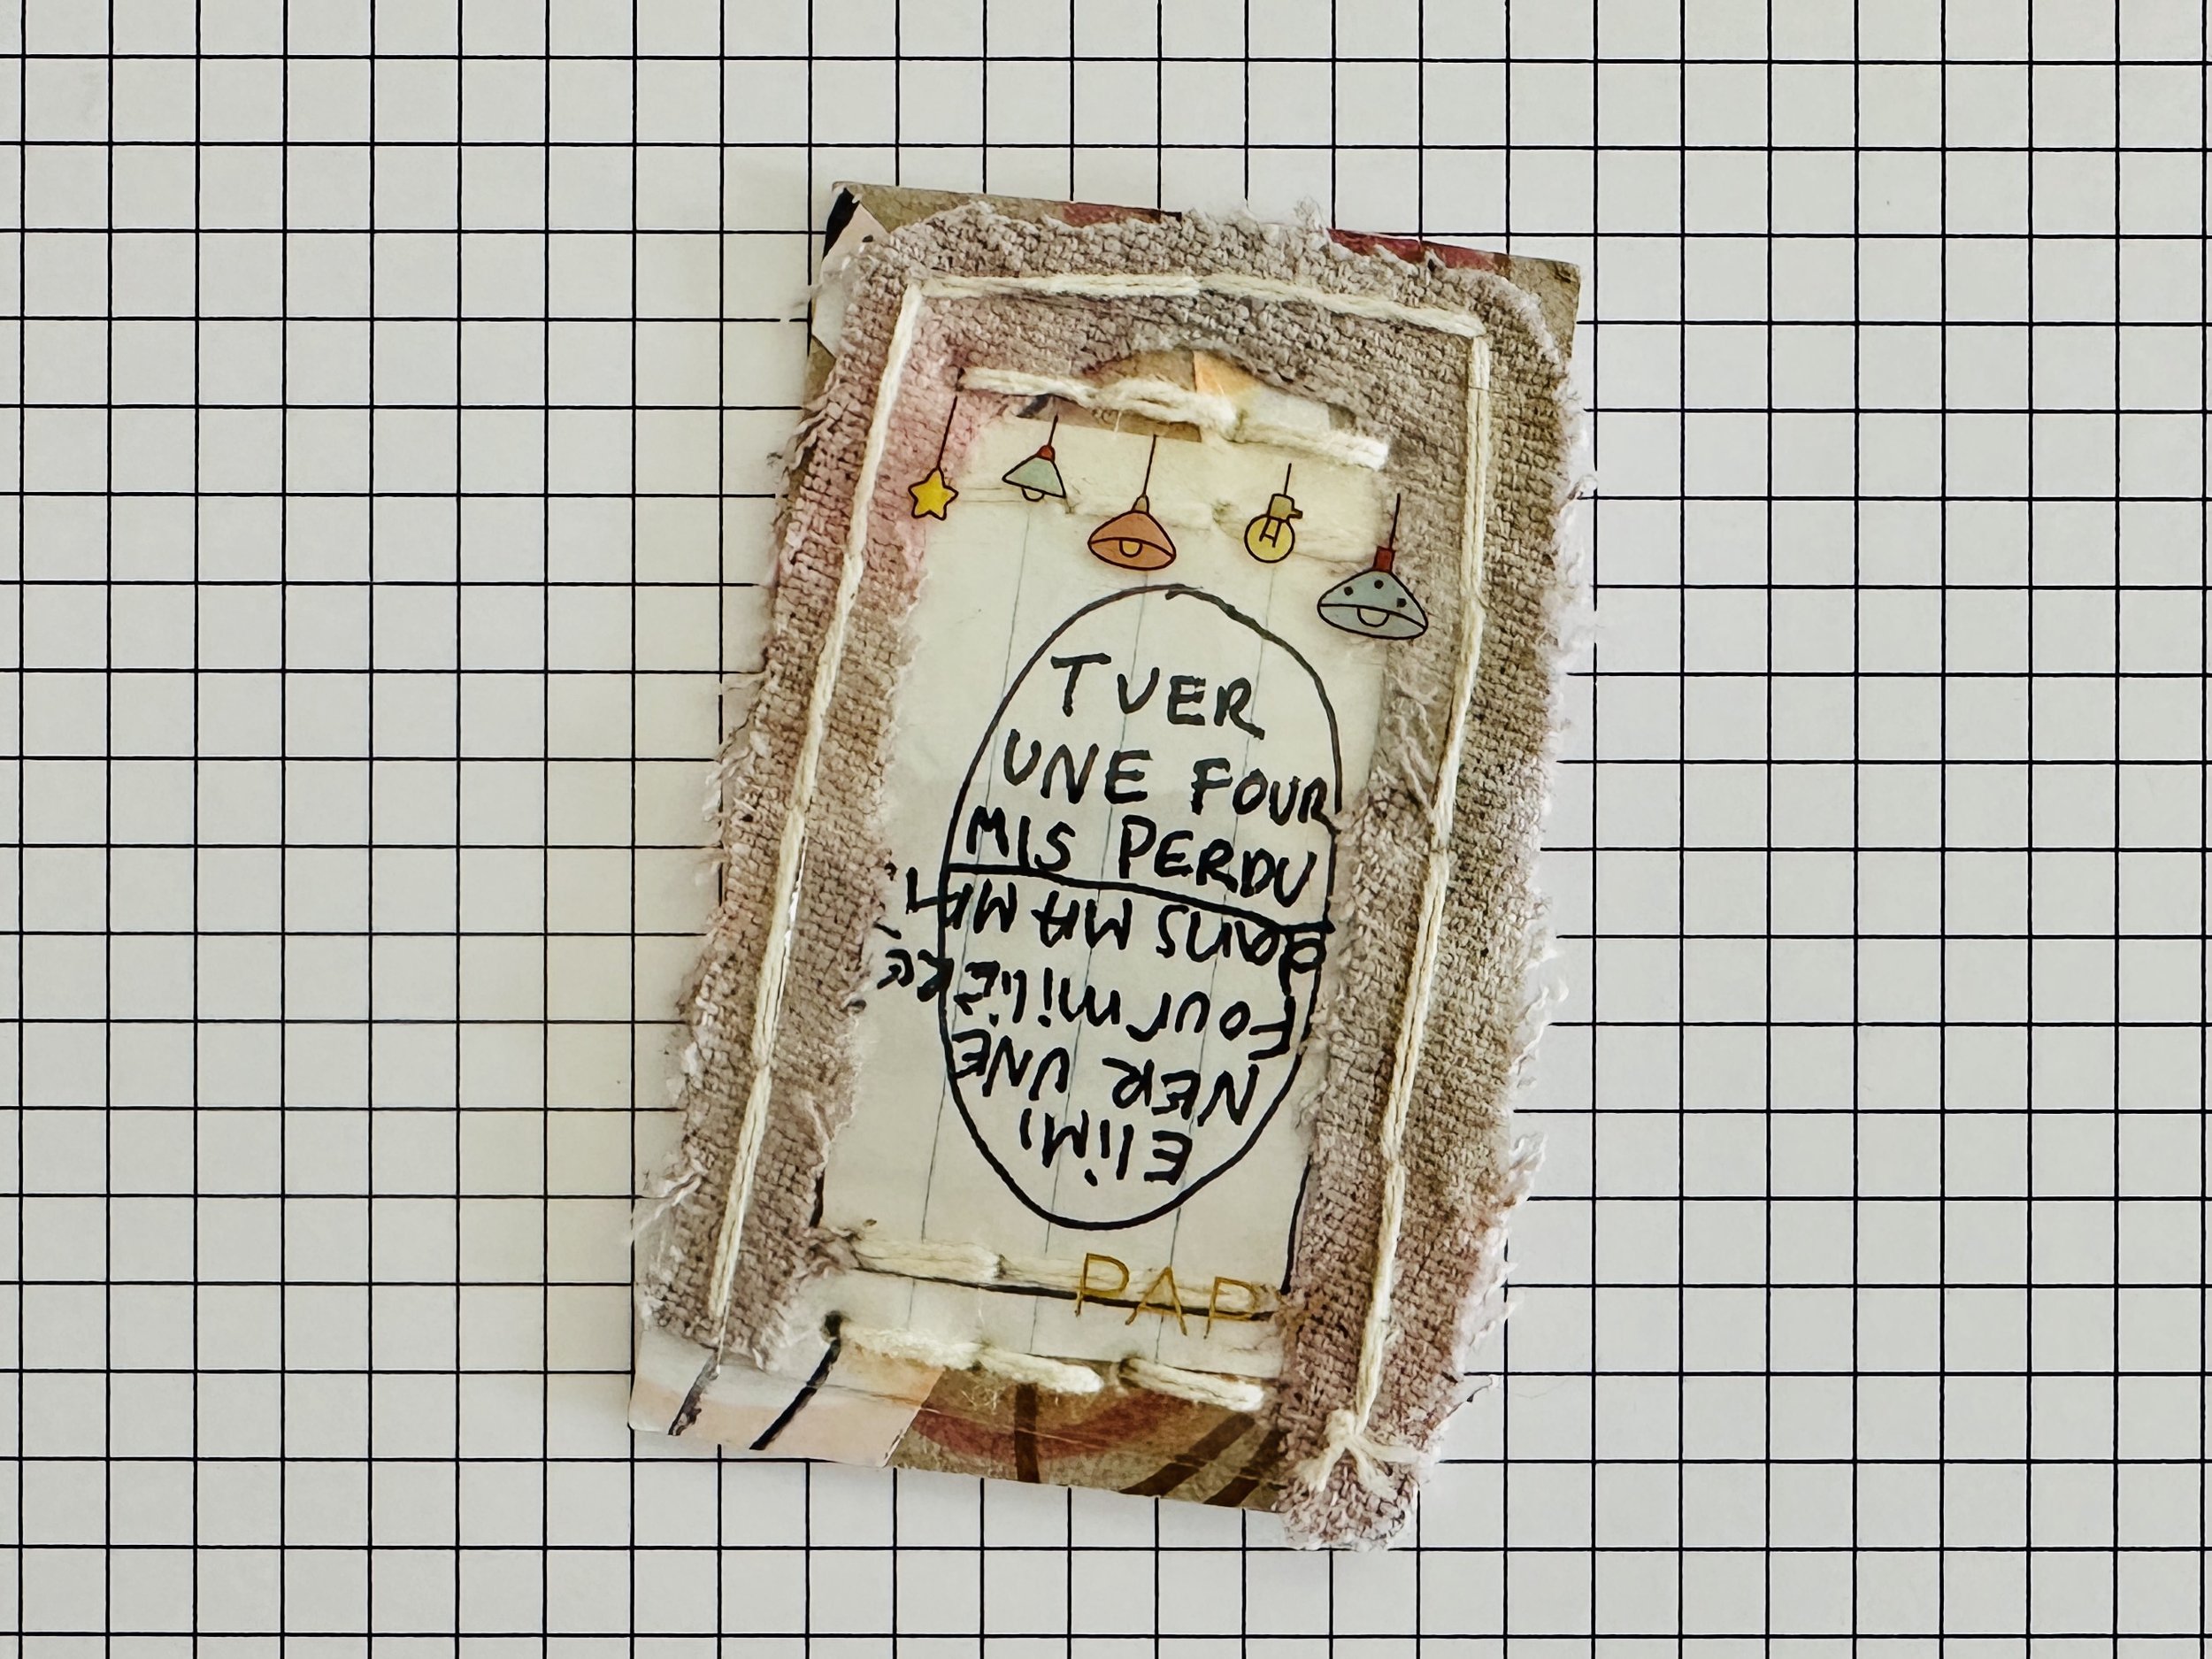 TUER
UNE FOUR
MIS PERDU
ELiMI
NER UNE
FourmiLiÈRE
dans MA
PAP